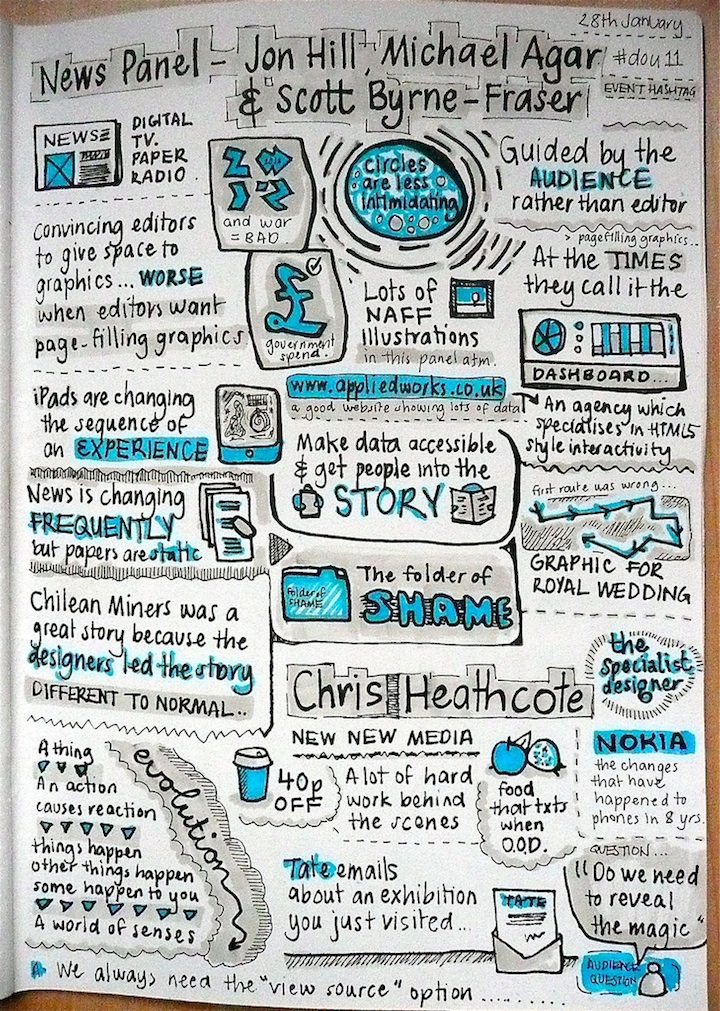 28th January
News Panel - Jon Hill, Michael Agar
& Scott Byrne-Fraser
#dou11
EVENT HASHTAG
NEWS
DIGITAL
TV.
PAPER
RADIO.
and war
= BAD.
circles
are less
intimidating
Guided by the
AUDIENCE
rather than editor
Convincing editors
to give space to
graphics... WORSE
when editors want
page-filling graphics
£
government
spend.
Lots of
NAFF
Illustrations
in this panel atm.
> pagefilling graphics...
At the TIMES
they call it the
DASHBOARD...
www.appliedworks.co.uk
a good website showing lots of data
An agency which
specialises in HTML5
style interactivity
iPads are changing
the sequence of
an EXPERIENCE
Make data accessible
& get people into the
STORY
News is changing
FREQUENTLY
but papers are static
first route was wrong...
GRAPHIC FOR
ROYAL WEDDING
folder of
SHAME
The folder of
SHAME
Chilean Miners was a
great story because the
designers led the story
DIFFERENT TO NORMAL...
Chris Heathcote
the
specialist
designer
A thing
An action
causes reaction
things happen
other things happen
some happen to you
A world of senses
evolution
NEW NEW MEDIA
40p
OFF
A lot of hard
work behind
the scenes
food
that txts
when
O.O.D.
NOKIA
the changes
that have
happened to
phones in 8 yrs.
Tate emails
about an exhibition
you just visited...
TATE
QUESTION...
"Do we need
to reveal
the magic"
AUDIENCE
QUESTION
We always need the "view source" option ..........